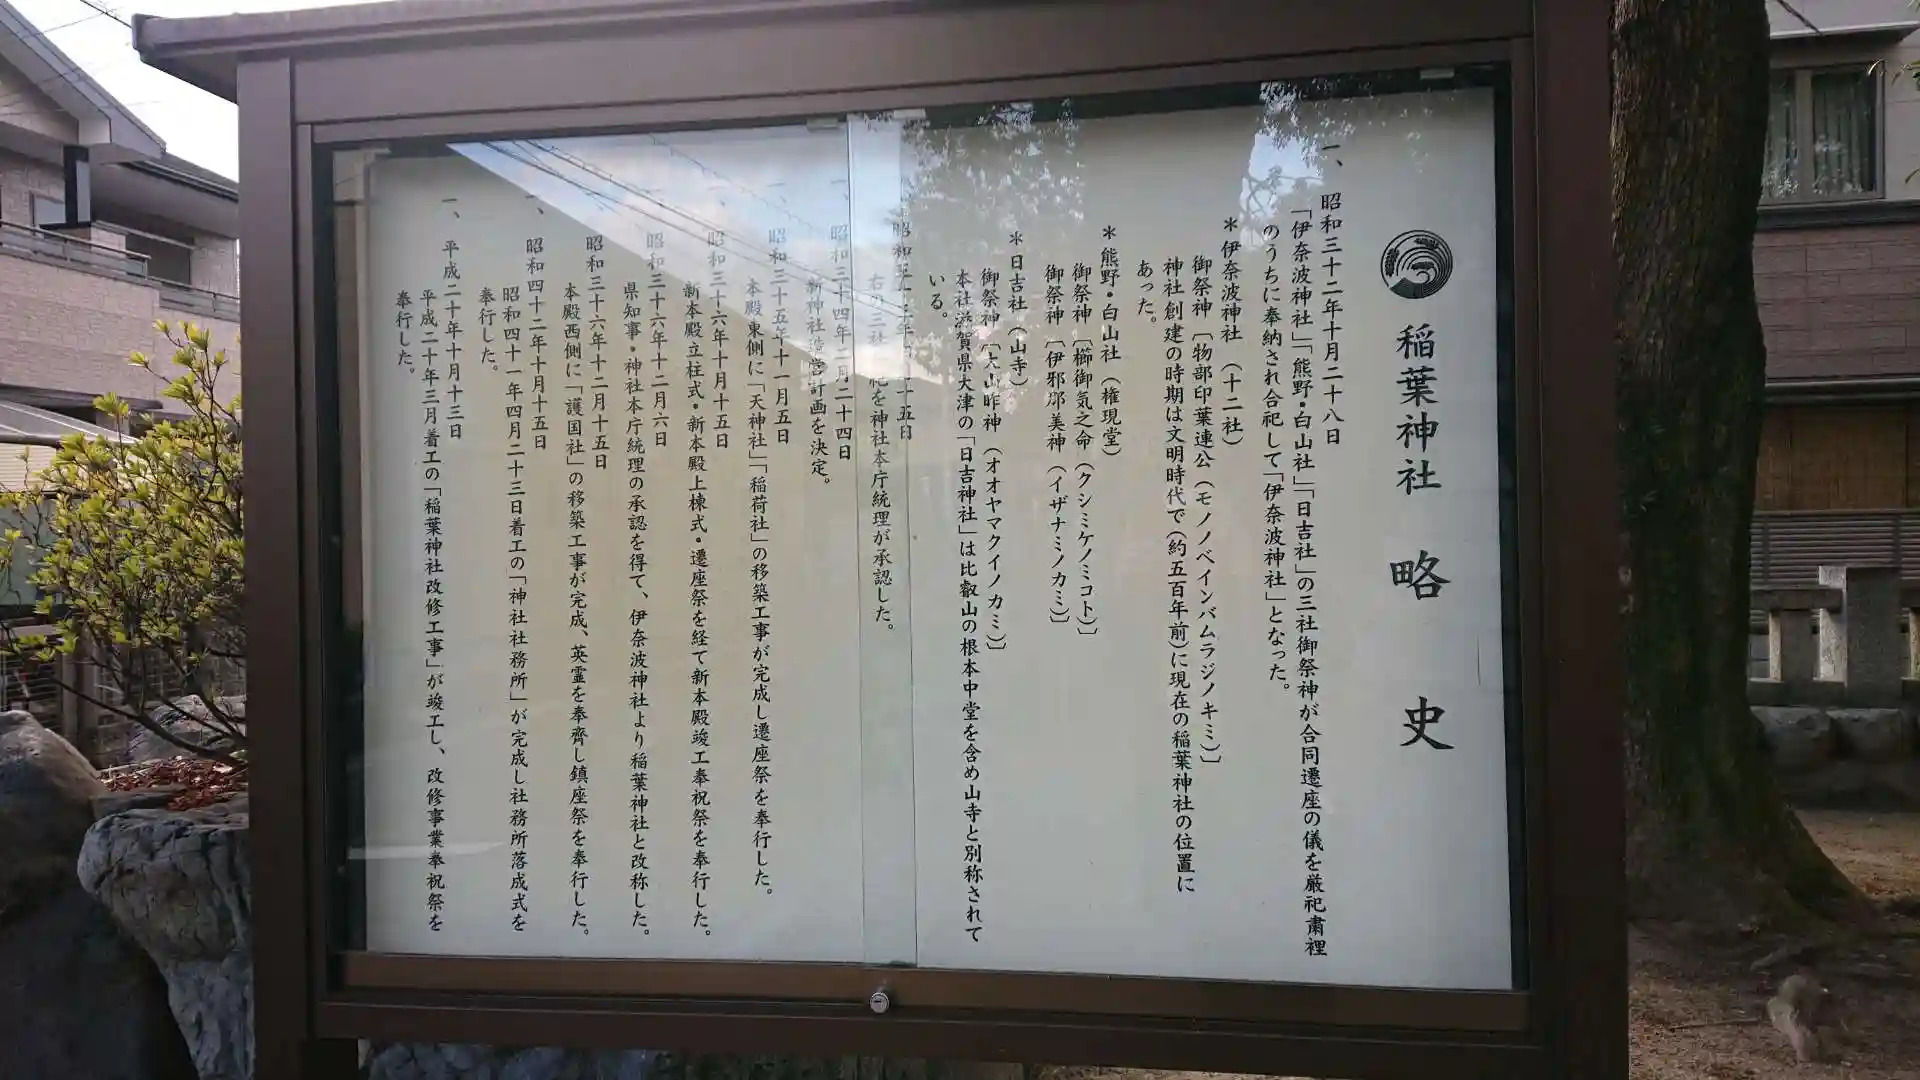 稲葉神社 略史
一、昭和三十二年十月二十八日
「伊奈波神社」「熊野・白山社」「日吉社」の三社御祭神が合同遷座の儀を厳祀粛裡
のうちに奉納され合祀して「伊奈波神社」となった。
＊伊奈波神社（十二社）
御祭神〔物部印葉連公（モノノベインバムラジノキミ）〕
神社創建の時期は文明時代で（約五百年前）に現在の稲葉神社の位置に
あった。
＊熊野・白山社（権現堂）
御祭神〔櫛御気之命（クシミケノミコト）〕
御祭神〔伊邪那美神（イザナミノカミ）〕
＊日吉社（山寺）
御祭神〔大山昨神（オオヤマクイノカミ）〕
本社滋賀県大津の「日吉神社」は比叡山の根本中堂を含め山寺と別称されて
いる。
昭和三十 年 十五日
右の三社 祀を神社本庁統理が承認した。
一、昭和三十四年二月二十四日
新神社造営計画を決定。
一、昭和三十五年十一月五日
本殿東側に「天神社」「稲荷社」の移築工事が完成し遷座祭を奉行した。
一、昭和三十六年十月十五日
新本殿立柱式・新本殿上棟式・遷座祭を経て新本殿竣工奉祝祭を奉行した。
一、昭和三十六年十二月六日
県知事・神社本庁統理の承認を得て、伊奈波神社より稲葉神社と改称した。
昭和三十六年十二月十五日
本殿西側に「護国社」の移築工事が完成、英霊を奉齊し鎮座祭を奉行した。
一、昭和四十二年十月十五日
昭和四十一年四月二十三日着工の「神社社務所」が完成し社務所落成式を
奉行した。
一、平成二十年十月十三日
平成二十年三月着工の「稲葉神社改修工事」が竣工し、改修事業奉祝祭を
奉行した。